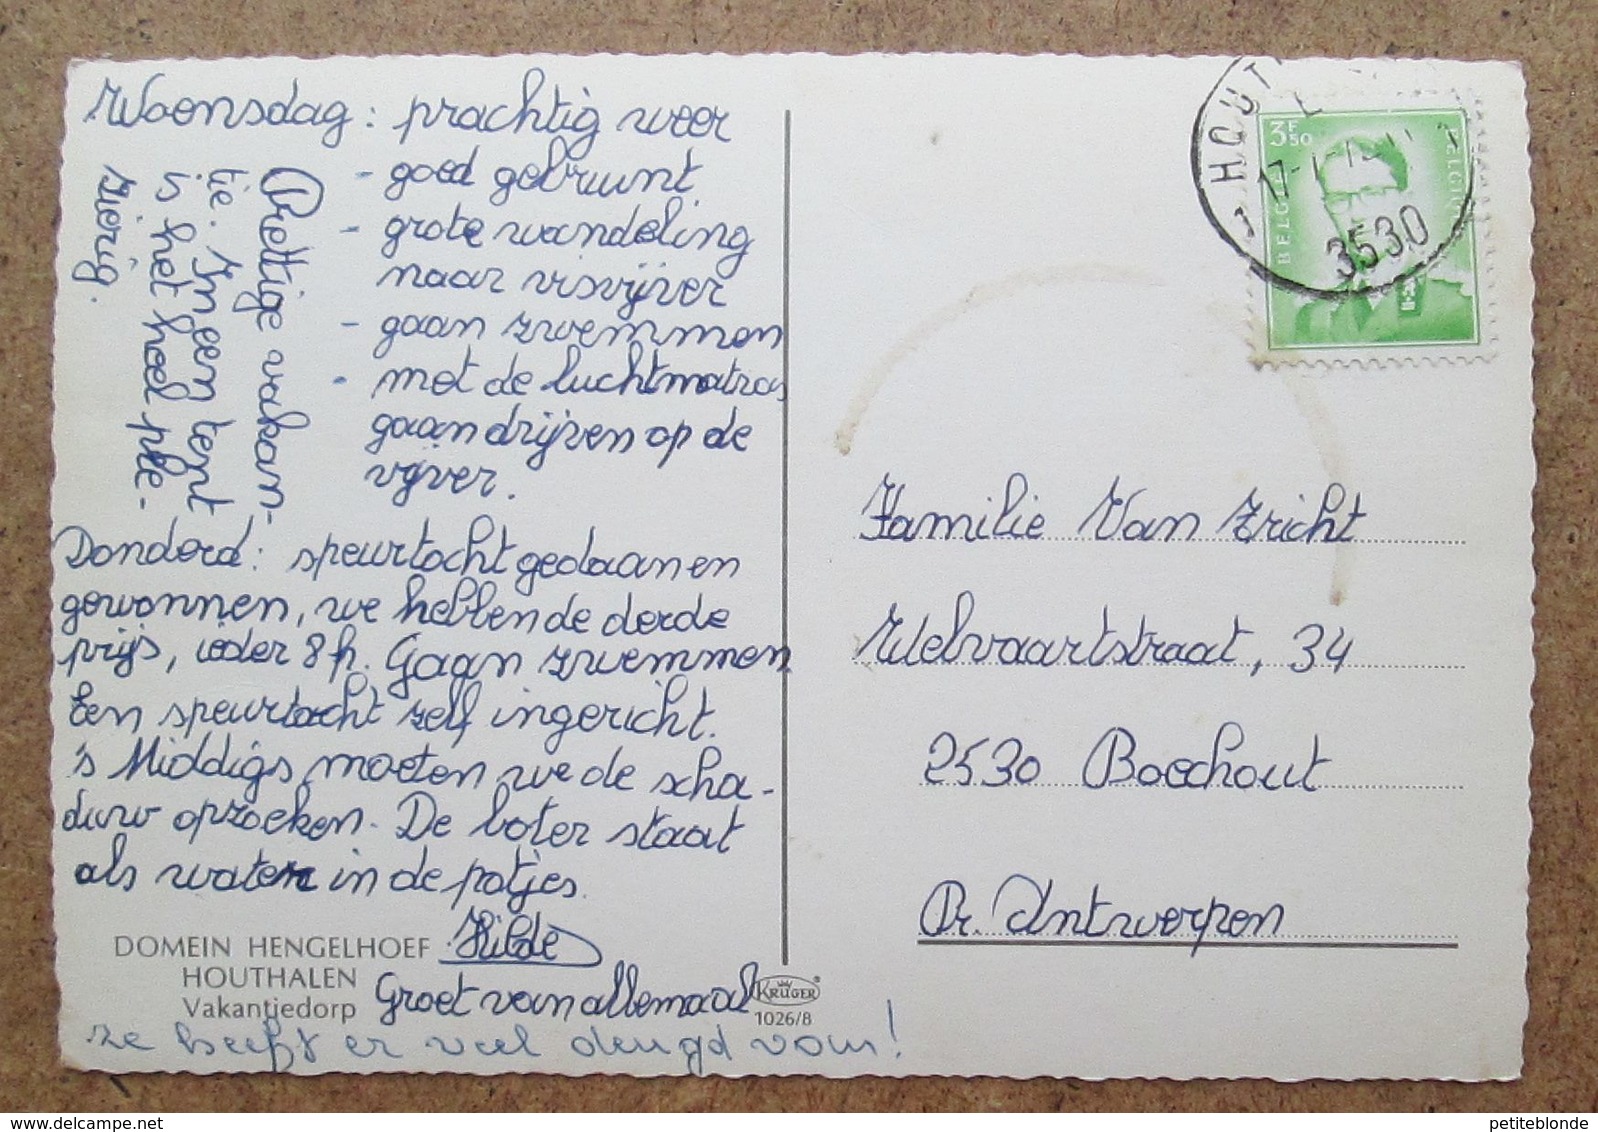 Woensdag : prachtig weer
- goed gebruint
- grote wandeling
naar visvijver
- gaan zwemmen
- met de luchtmatras
gaan drijven op de
vijver.
Prettige vakan-
tie. In een tent
is het heel ple-
zierig.
Donderd : speurtocht gedaan en
gewonnen, we hebben de derde
prijs, ieder 8 fr. Gaan zwemmen
Een speurtocht zelf ingericht.
's Middigs moeten we de scha-
duw opzoeken. De boter staat
als water in de potjes.
Hilde
Groet van allemaal
ze heeft er veel deugd van!
DOMEIN HENGELHOEF
HOUTHALEN
Vakantiedorp
KRÜGER
1026/8
HOUT
17
3530
3F50
BELGIË
BELGIQUE
Familie Van Zricht
Welvaartstraat, 34
2530 Boechout
Pr. Antwerpen
petiteblonde